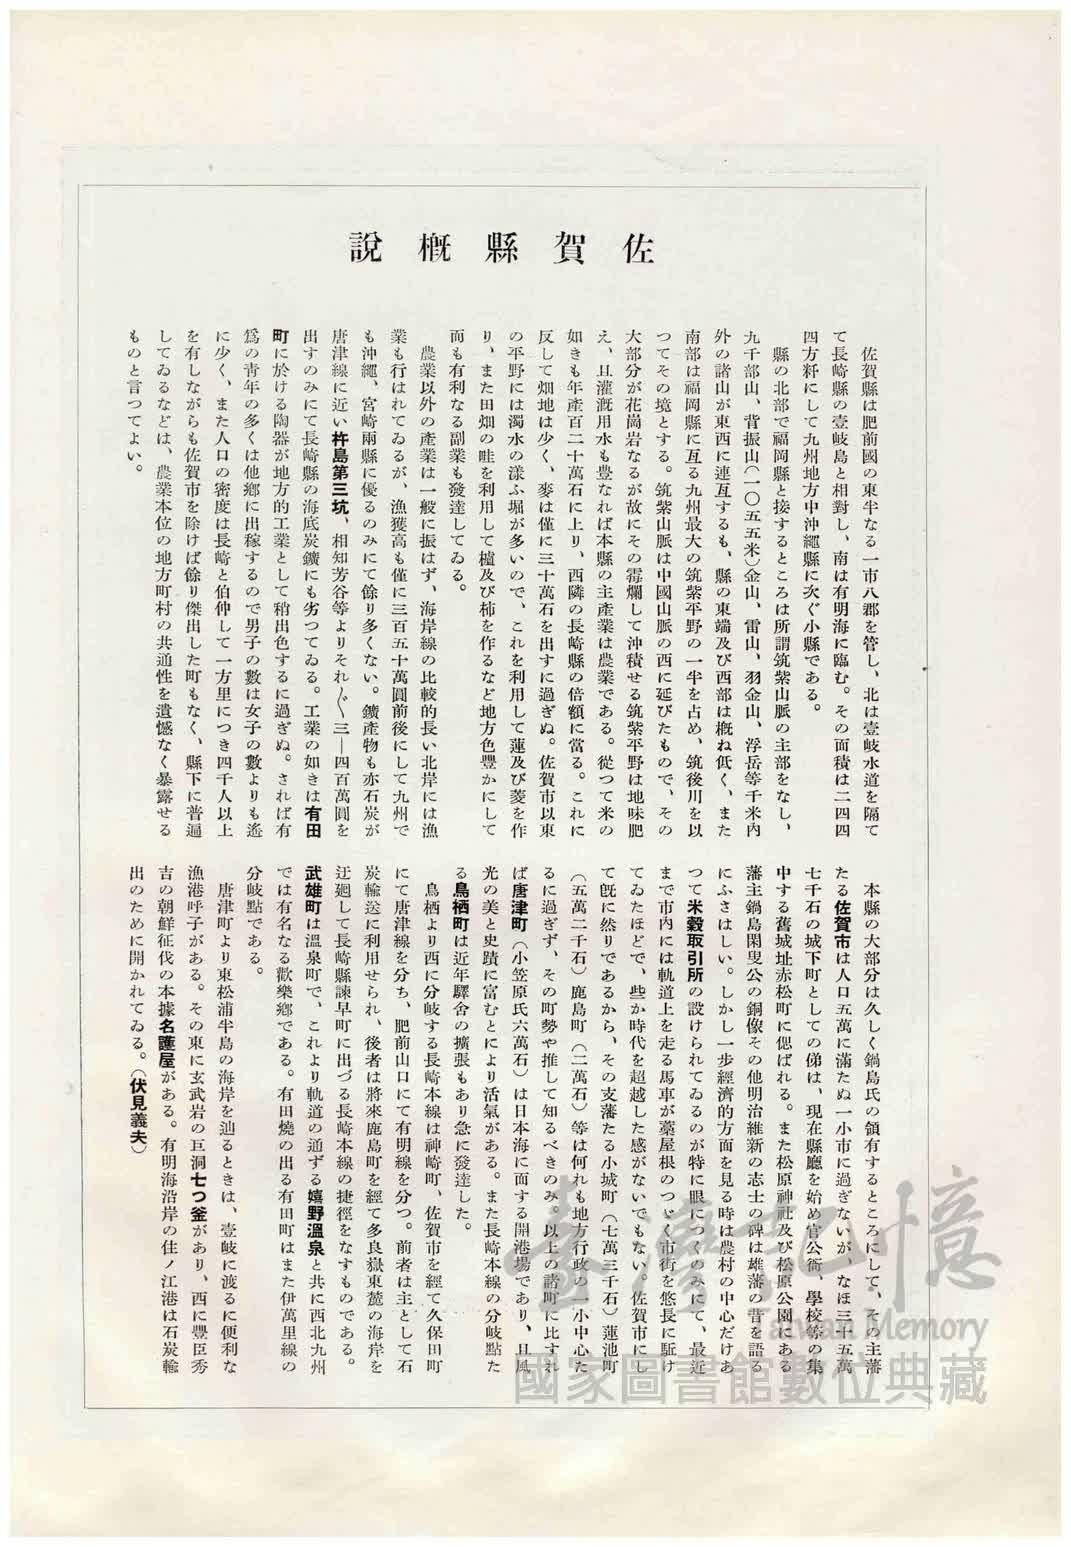 佐賀縣槪說
佐賀縣は肥前國の東半なる一市八郡を管し、北は壹岐水道を隔て
て長崎縣の壹岐島と相對し、南は有明海に臨む。その面積は二四四
四方粁にして九州地方中沖繩縣に次ぐ小縣である。
縣の北部で福岡縣と接するところは所謂筑紫山脈の主部をなし、
九千部山、背振山(一〇五五米)金山、雷山、羽金山、浮岳等千米內
外の諸山が東西に連互するも、縣の東端及び西部は槪ね低く、また
南部は福岡縣に互る九州最大の筑紫平野の一半を占め、筑後川を以
つてその境とする。筑紫山脈は中國山脈の西に延びたもので、その
大部分が花崗岩なるが故にその霉爛して沖積せる筑紫平野は地味肥
え、且灌漑用水も豊なれば本縣の主產業は農業である。從つて米の
如きも年產百二十萬石に上り、西隣の長崎縣の倍額に當る。これに
反して畑地は少く、麥は僅に三十萬石を出すに過ぎぬ。佐賀市以東
の平野には濁水の漾ふ堀が多いので、これを利用して蓮及び菱を作
り、また田畑の畦を利用して櫨及び柿を作るなど地方色豊かにして
而も有利なる副業も發達してゐる。
農業以外の產業は一般に振はず、海岸線の比較的長い北岸には漁
業も行はれてゐるが、漁獲高も僅に三百五十萬圓前後にして九州で
も沖繩、宮崎兩縣に優るのみにて餘り多くない。鑛產物も亦石炭が
唐津線に近い杵島第三坑、相知芳谷等よりそれ〲三—四百萬圓を
出すのみにて長崎縣の海底炭鑛にも劣つてゐる。工業の如きは有田
町に於ける陶器が地方的工業として稍出色するに過ぎぬ。されば有
爲の靑年の多くは他鄕に出稼するので男子の數は女子の數よりも遙
に少く、また人口の密度は長崎と伯仲して一方里につき四千人以上
を有しながらも佐賀市を除けば餘り傑出した町もなく、縣下に普遍
してゐるなどは、農業本位の地方町村の共通性を遺憾なく暴露せる
ものと言つてよい。
本縣の大部分は久しく鍋島氏の領有するところにして、その主藩
たる佐賀市は人口五萬に滿たぬ一小市に過ぎないが、なほ三十五萬
七千石の城下町としての俤は、現在縣廳を始め官公衙、學校等の集
中する舊城址赤松町に偲ばれる。また松原神社及び松原公園にある
藩主鍋島閑叟公の銅像その他明治維新の志士の碑は雄藩の昔を語る
にふさはしい。しかし一步經濟的方面を見る時は農村の中心だけあ
つて米穀取引所の設けられてゐるのが特に眼につくのみにて、最近
まで市內には軌道上を走る馬車が藁屋根のつゞく市街を悠長に駈け
てゐたほどで、些か時代を超越した感がないでもない。佐賀市にし
て旣に然りであるから、その支藩たる小城町(七萬三千石)蓮池町
(五萬二千石)鹿島町(二萬石)等は何れも地方行政の一小中心た
るに過ぎず、その町勢や推して知るべきのみ。以上の諸町に比すれ
ば唐津町(小笠原氏六萬石)は日本海に面する開港場であり、且風
光の美と史蹟に富むとにより活氣がある。また長崎本線の分岐點た
る鳥栖町は近年驛舍の擴張もあり急に發達した。
鳥栖より西に分岐する長崎本線は神崎町、佐賀市を經て久保田町
にて唐津線を分ち、肥前山口にて有明線を分つ。前者は主として石
炭輸送に利用せられ、後者は將來鹿島町を經て多良嶽東麓の海岸を
迂廻して長崎縣諫早町に出づる長崎本線の捷徑をなすものである。
武雄町は溫泉町で、これより軌道の通ずる嬉野溫泉と共に西北九州
では有名なる歡樂鄕である。有田燒の出る有田町はまた伊萬里線の
分岐點である。
唐津町より東松浦半島の海岸を辿るときは、壹岐に渡るに便利な
漁港呼子がある。その東に玄武岩の巨洞七つ釜があり、西に豐臣秀
吉の朝鮮征伐の本據名護屋がある。有明海沿岸の住ノ江港は石炭輸
出のために開かれてゐる。(伏見義夫)
臺灣記憶
Taiwan Memory
國家圖書館數位典藏